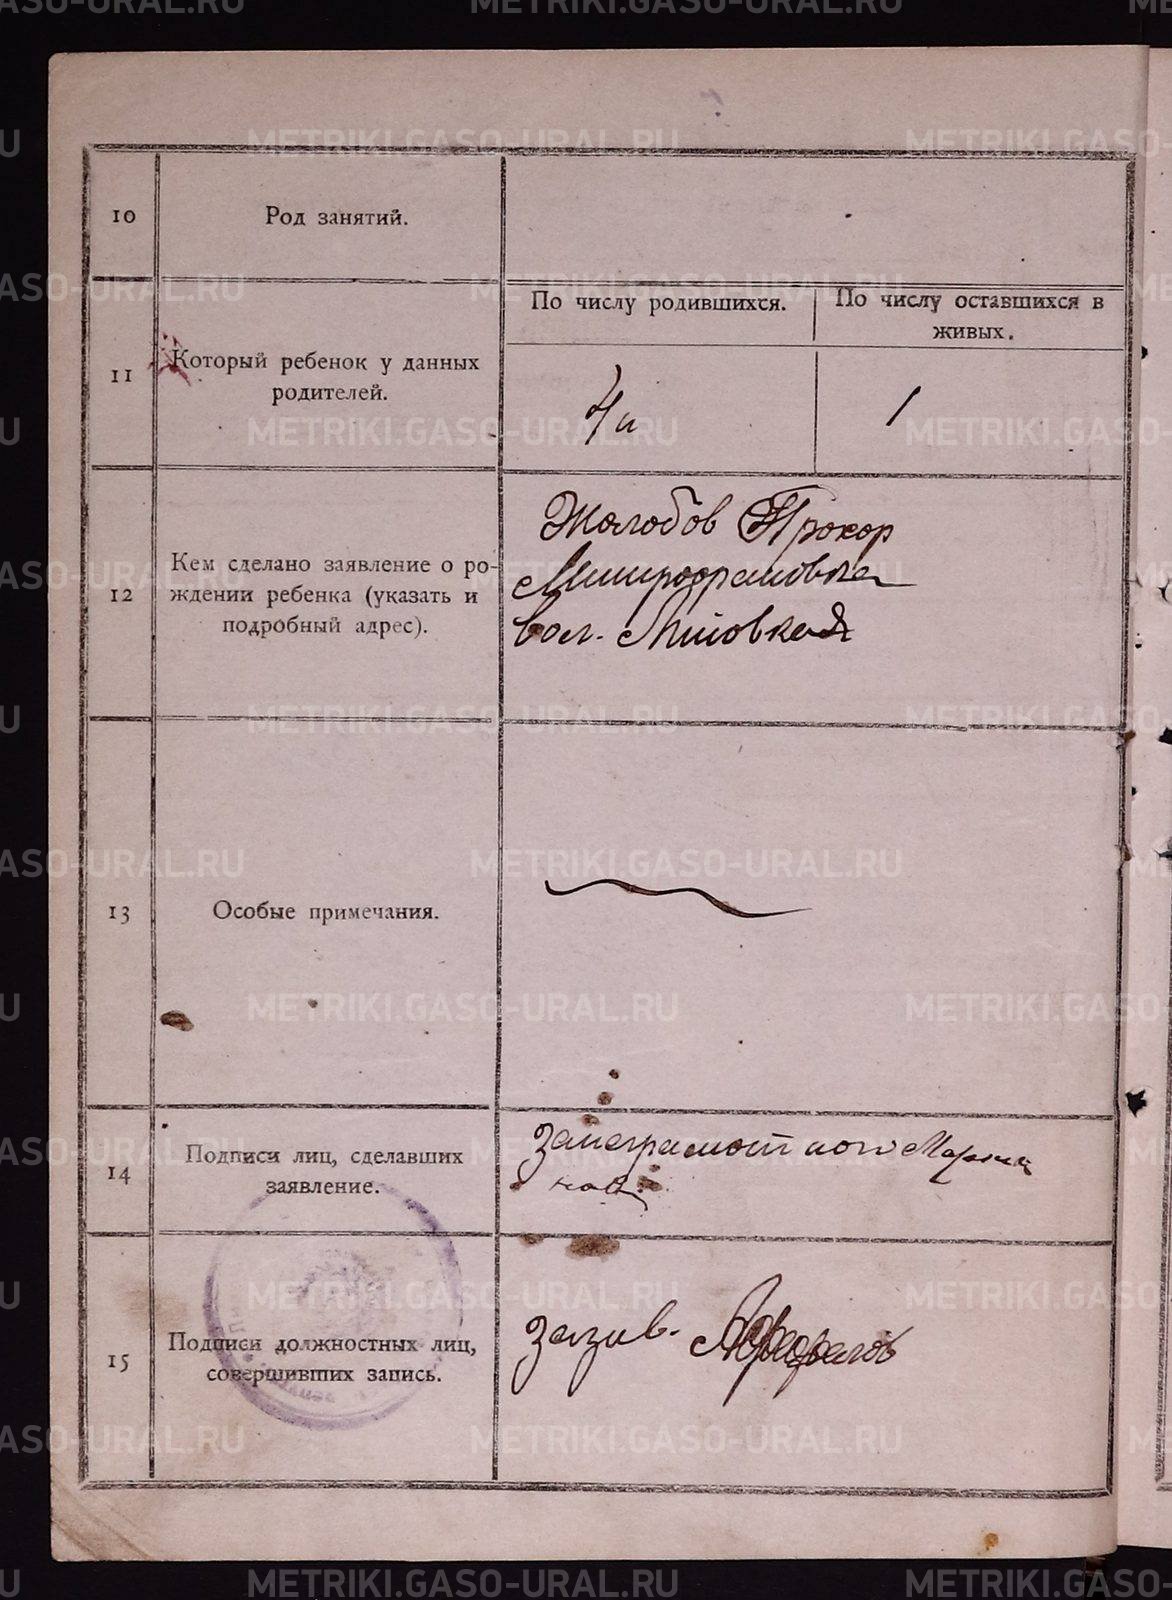 METRIKI.GASO-URAL.RU
10
Род занятий.
11
Который ребенок у данных
родителей.
По числу родившихся.
По числу оставшихся в
живых.
4й
1
12
Кем сделано заявление о ро-
ждении ребенка (указать и
подробный адрес).
Жолобов Прокор
Митрофанович
вол.
13
Особые примечания.
14
Подписи лиц, сделавших
заявление.
За неграмотного
15
Подписи должностных лиц,
совершивших запись.